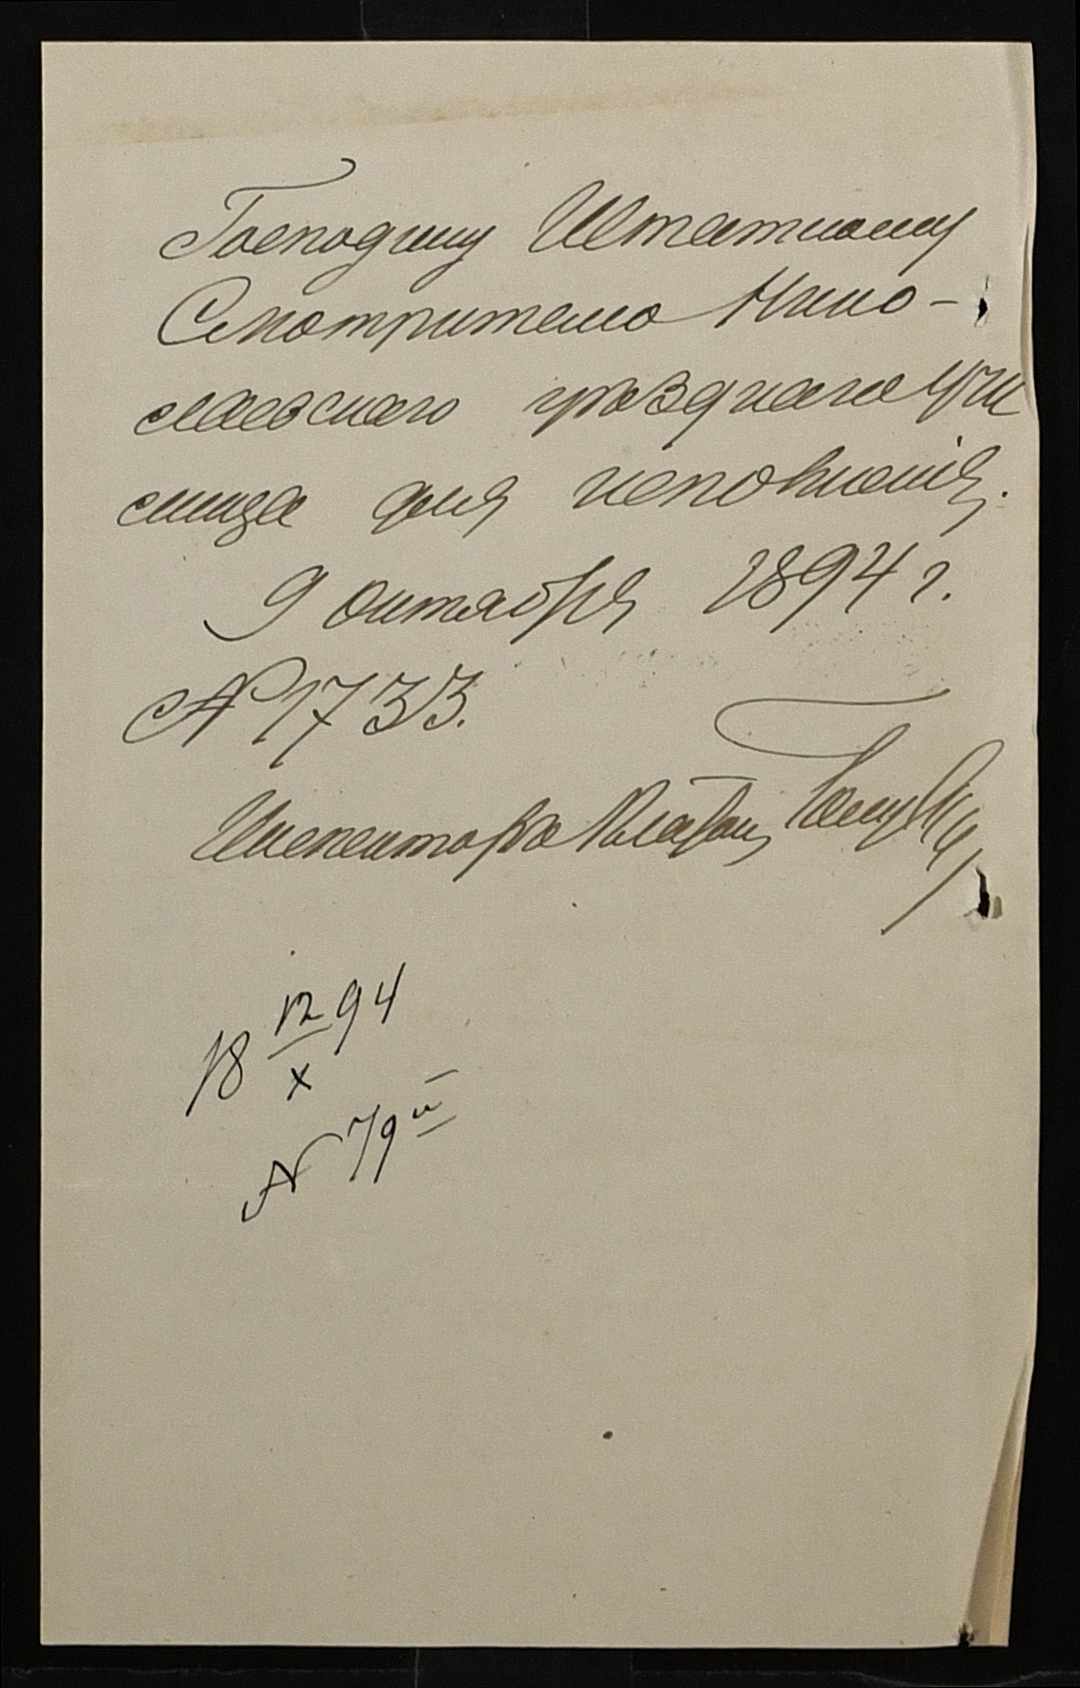 Господину Штатному
Смотрителю Нико-
лаевскаго уѣзднаго Учи
лища для исполненія.
9 октября 1894 г.
№ 1733.
Инспекторъ
18 12/X 94
№ 79